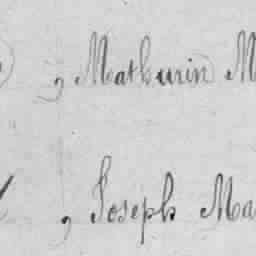 , Mathurin M
, Joseph Ma